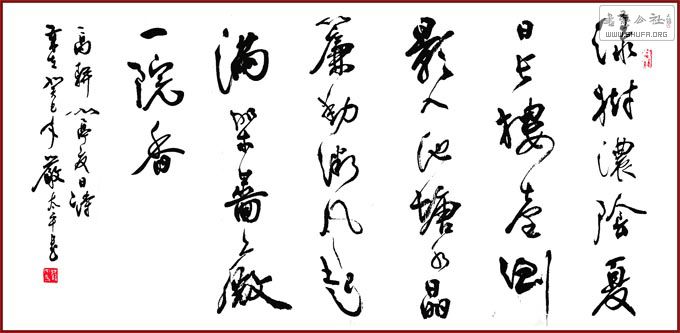 綠樹濃陰夏
日長樓臺倒
影入池塘水晶
簾動微風起
滿架薔薇
一院香
高駢山亭夏日詩
癸巳年嚴太平書
书法公社
WWW.SHUFA.ORG